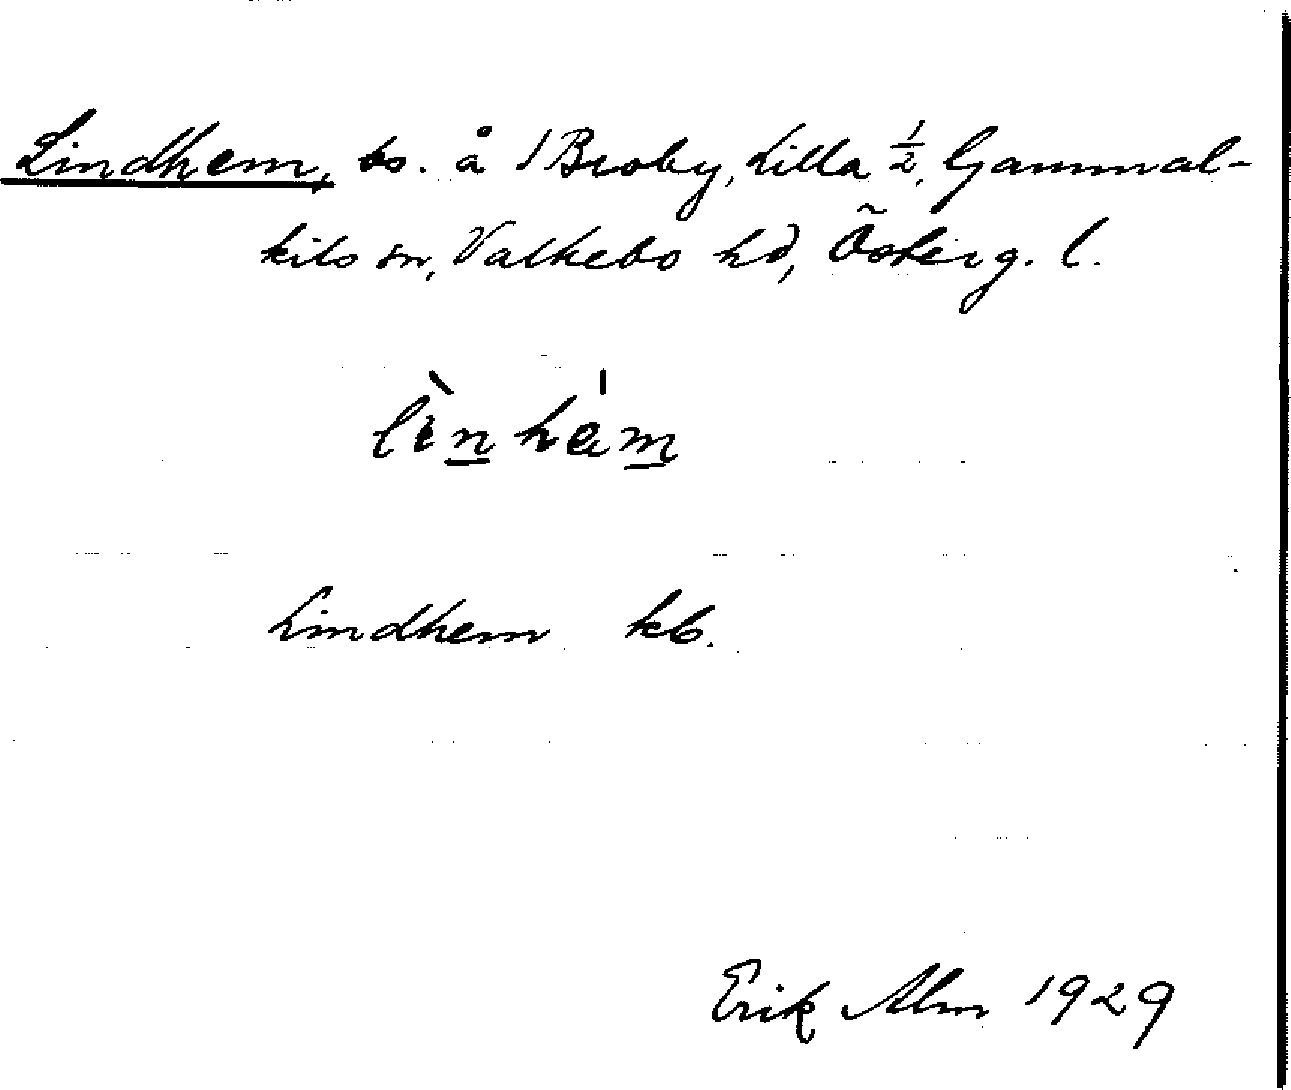 Lindhem, bs. å 1 Broby, Lilla ½, Gammal-
kils sn, Valkebo hd, Österg. l.
lìnhem
Lindhem kb.
Erik Alm 1929